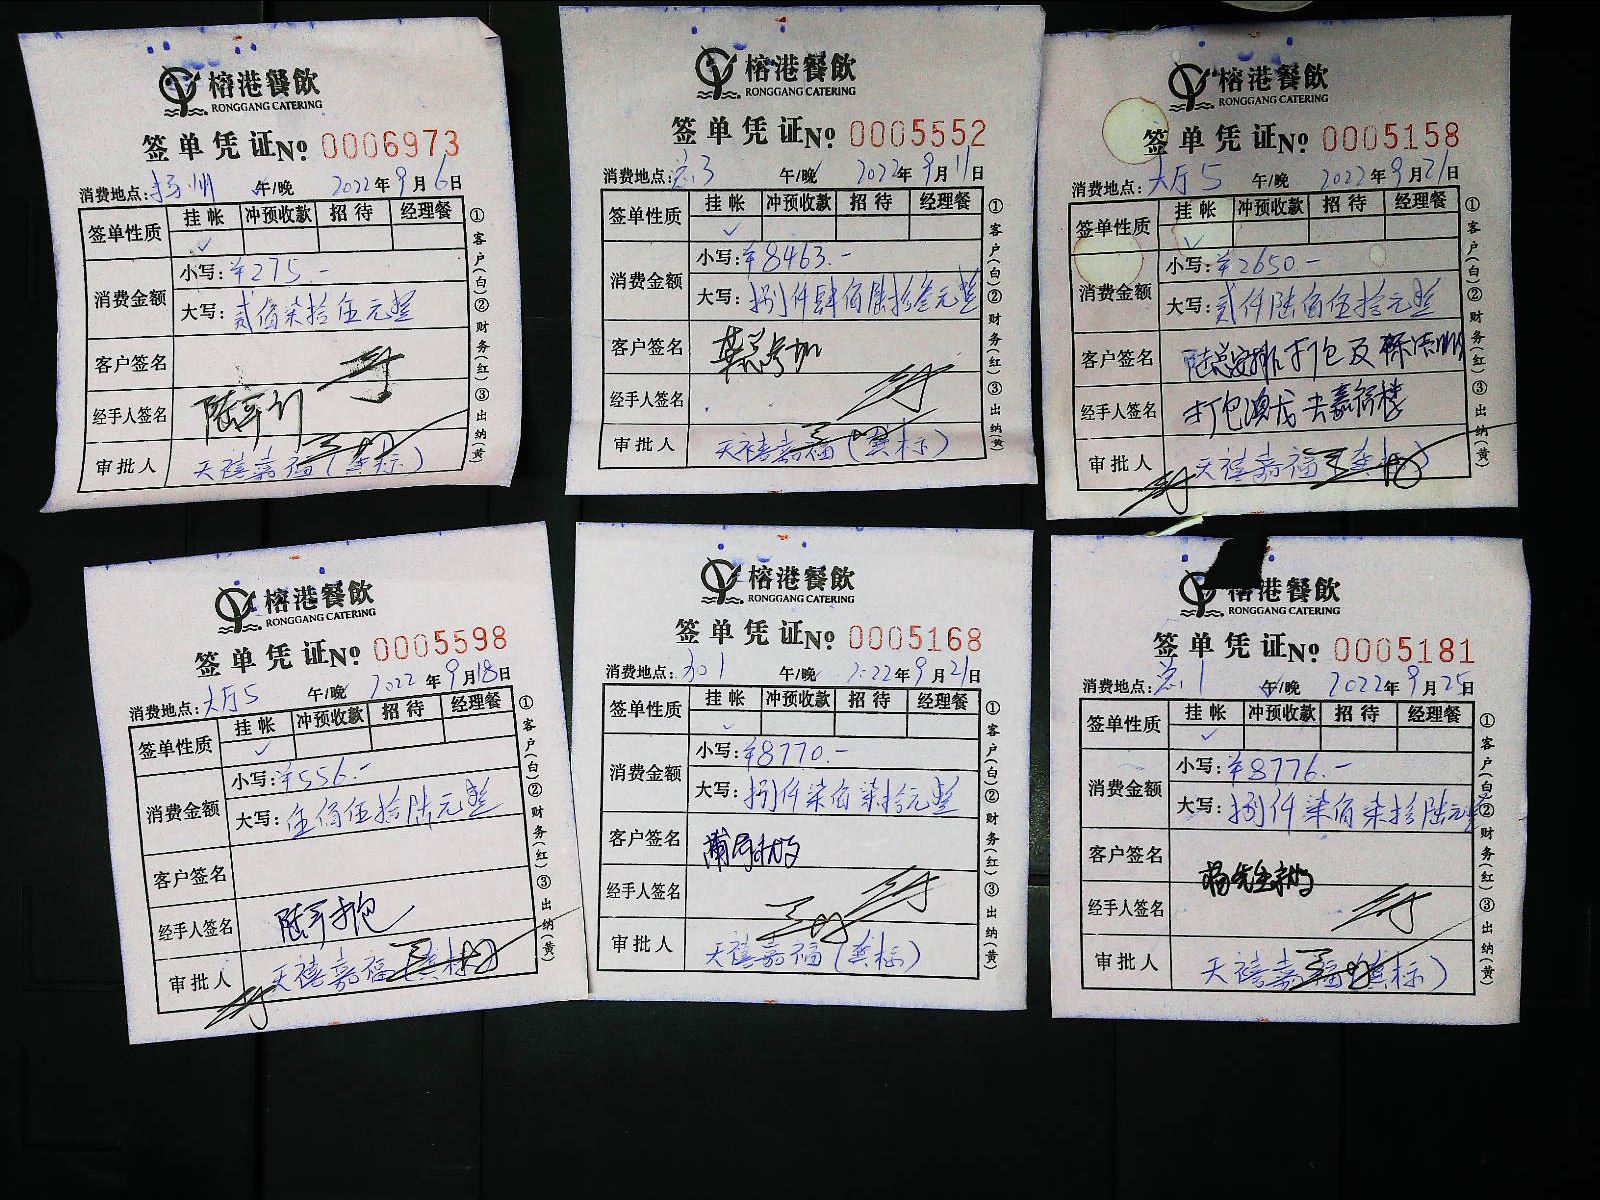 榕港餐飲
RONGGANG CATERING
签单凭证No 0006973
消费地点:扬州 午/晚 2022年9月6日
签单性质 挂帐 冲预收款 招待 经理餐
消费金额 小写:¥275.-
大写:贰佰柒拾伍元整
客户签名
经手人签名
审批人 天禧嘉福(龚标)
①客户(白)②财务(红)③出纳(黄)
榕港餐飲
RONGGANG CATERING
签单凭证No 0005552
消费地点:总3 午/晚 2022年9月11日
签单性质 挂帐 冲预收款 招待 经理餐
消费金额 小写:¥8463.-
大写:捌仟肆佰陆拾叁元整
客户签名
经手人签名
审批人 天禧嘉福(龚标)
①客户(白)②财务(红)③出纳(黄)
榕港餐飲
RONGGANG CATERING
签单凭证No 0005158
消费地点:大厅5 午/晚 2022年9月21日
签单性质 挂帐 冲预收款 招待 经理餐
消费金额 小写:¥2650.-
大写:贰仟陆佰伍拾元整
客户签名 陆总安排打包及
经手人签名 打包澳龙去嘉福楼
审批人 天禧嘉福
①客户(白)②财务(红)③出纳(黄)
榕港餐飲
RONGGANG CATERING
签单凭证No 0005598
消费地点:大厅5 午/晚 2022年9月18日
签单性质 挂帐 冲预收款 招待 经理餐
消费金额 小写:¥556.-
大写:伍佰伍拾陆元整
客户签名
经手人签名
审批人 天禧嘉福(龚标)
①客户(白)②财务(红)③出纳(黄)
榕港餐飲
RONGGANG CATERING
签单凭证No 0005168
消费地点: 午/晚 2022年9月21日
签单性质 挂帐 冲预收款 招待 经理餐
消费金额 小写:¥8770.-
大写:捌仟柒佰柒拾元整
客户签名
经手人签名
审批人 天禧嘉福(龚标)
①客户(白)②财务(红)③出纳(黄)
榕港餐飲
RONGGANG CATERING
签单凭证No 0005181
消费地点:总1 午/晚 2022年9月25日
签单性质 挂帐 冲预收款 招待 经理餐
消费金额 小写:¥8776.-
大写:捌仟柒佰柒拾陆元整
客户签名
经手人签名
审批人 天禧嘉福(龚标)
①客户(白)②财务(红)③出纳(黄)